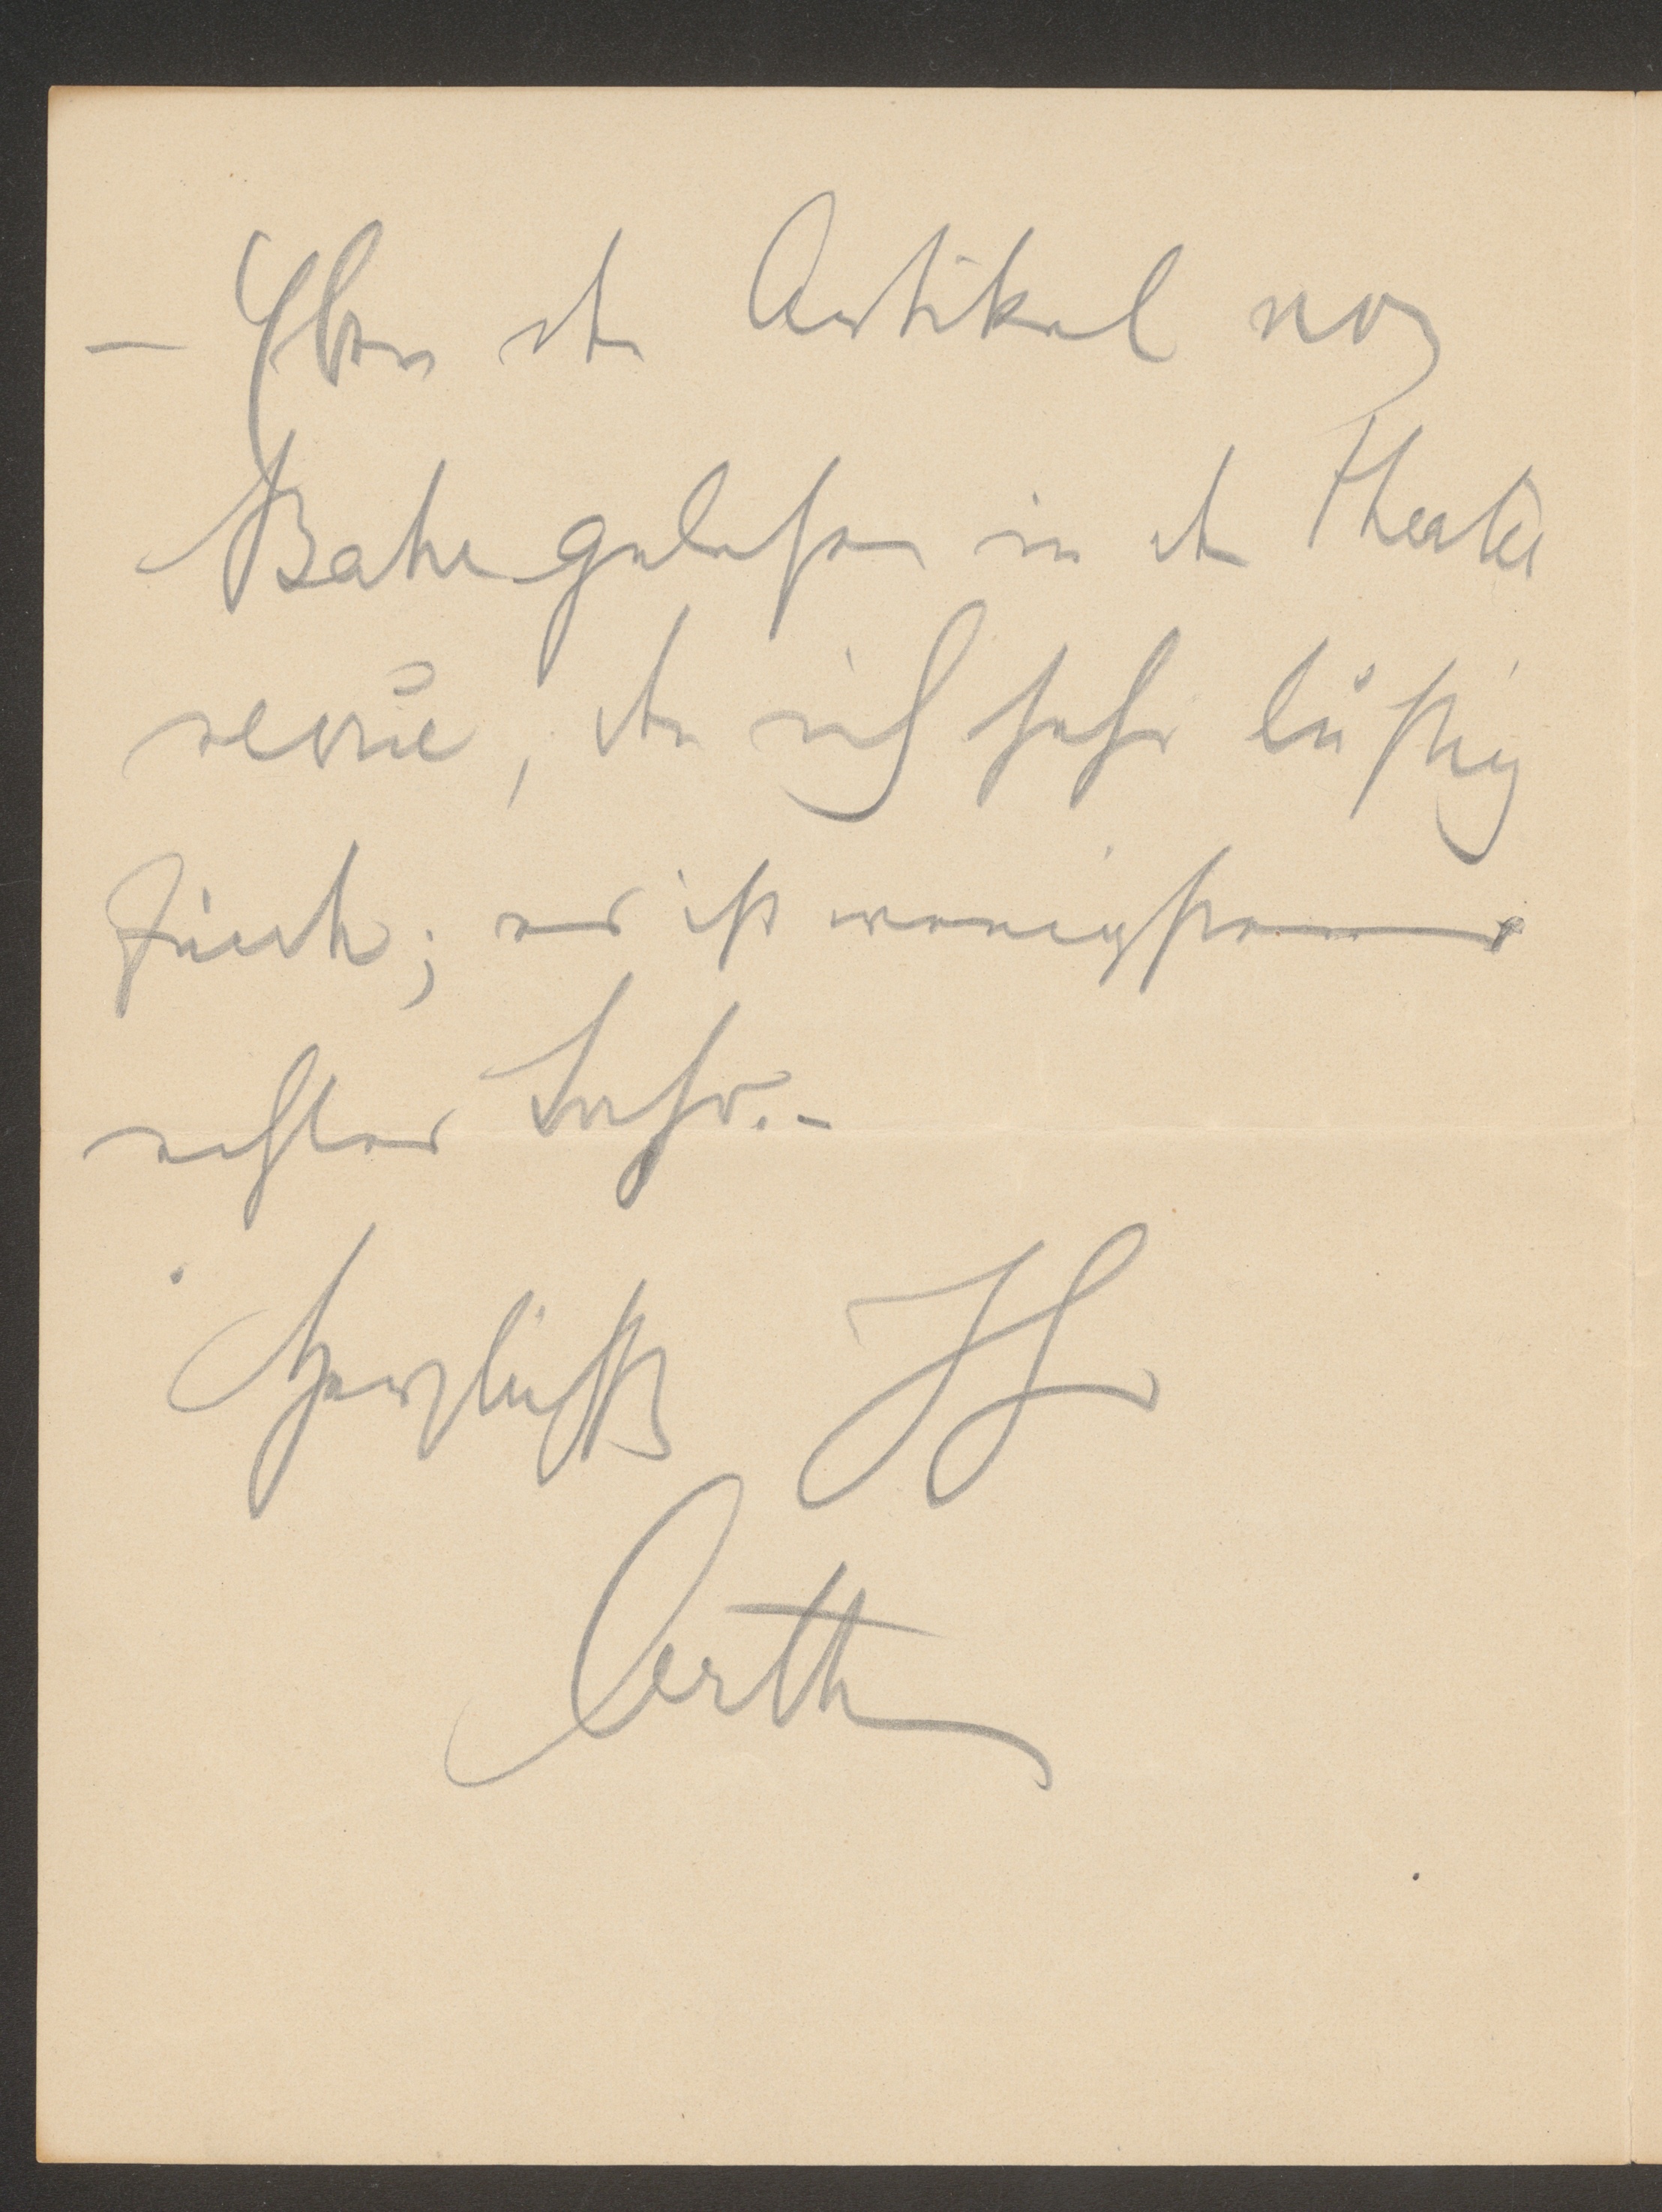 – Eben den Artikel von
Bahr gelesen in der Theater
revüe, den ich sehr lustig
finde; er ist wenigstens
echter Bahr. –
Herzlichst Ihr
Arth